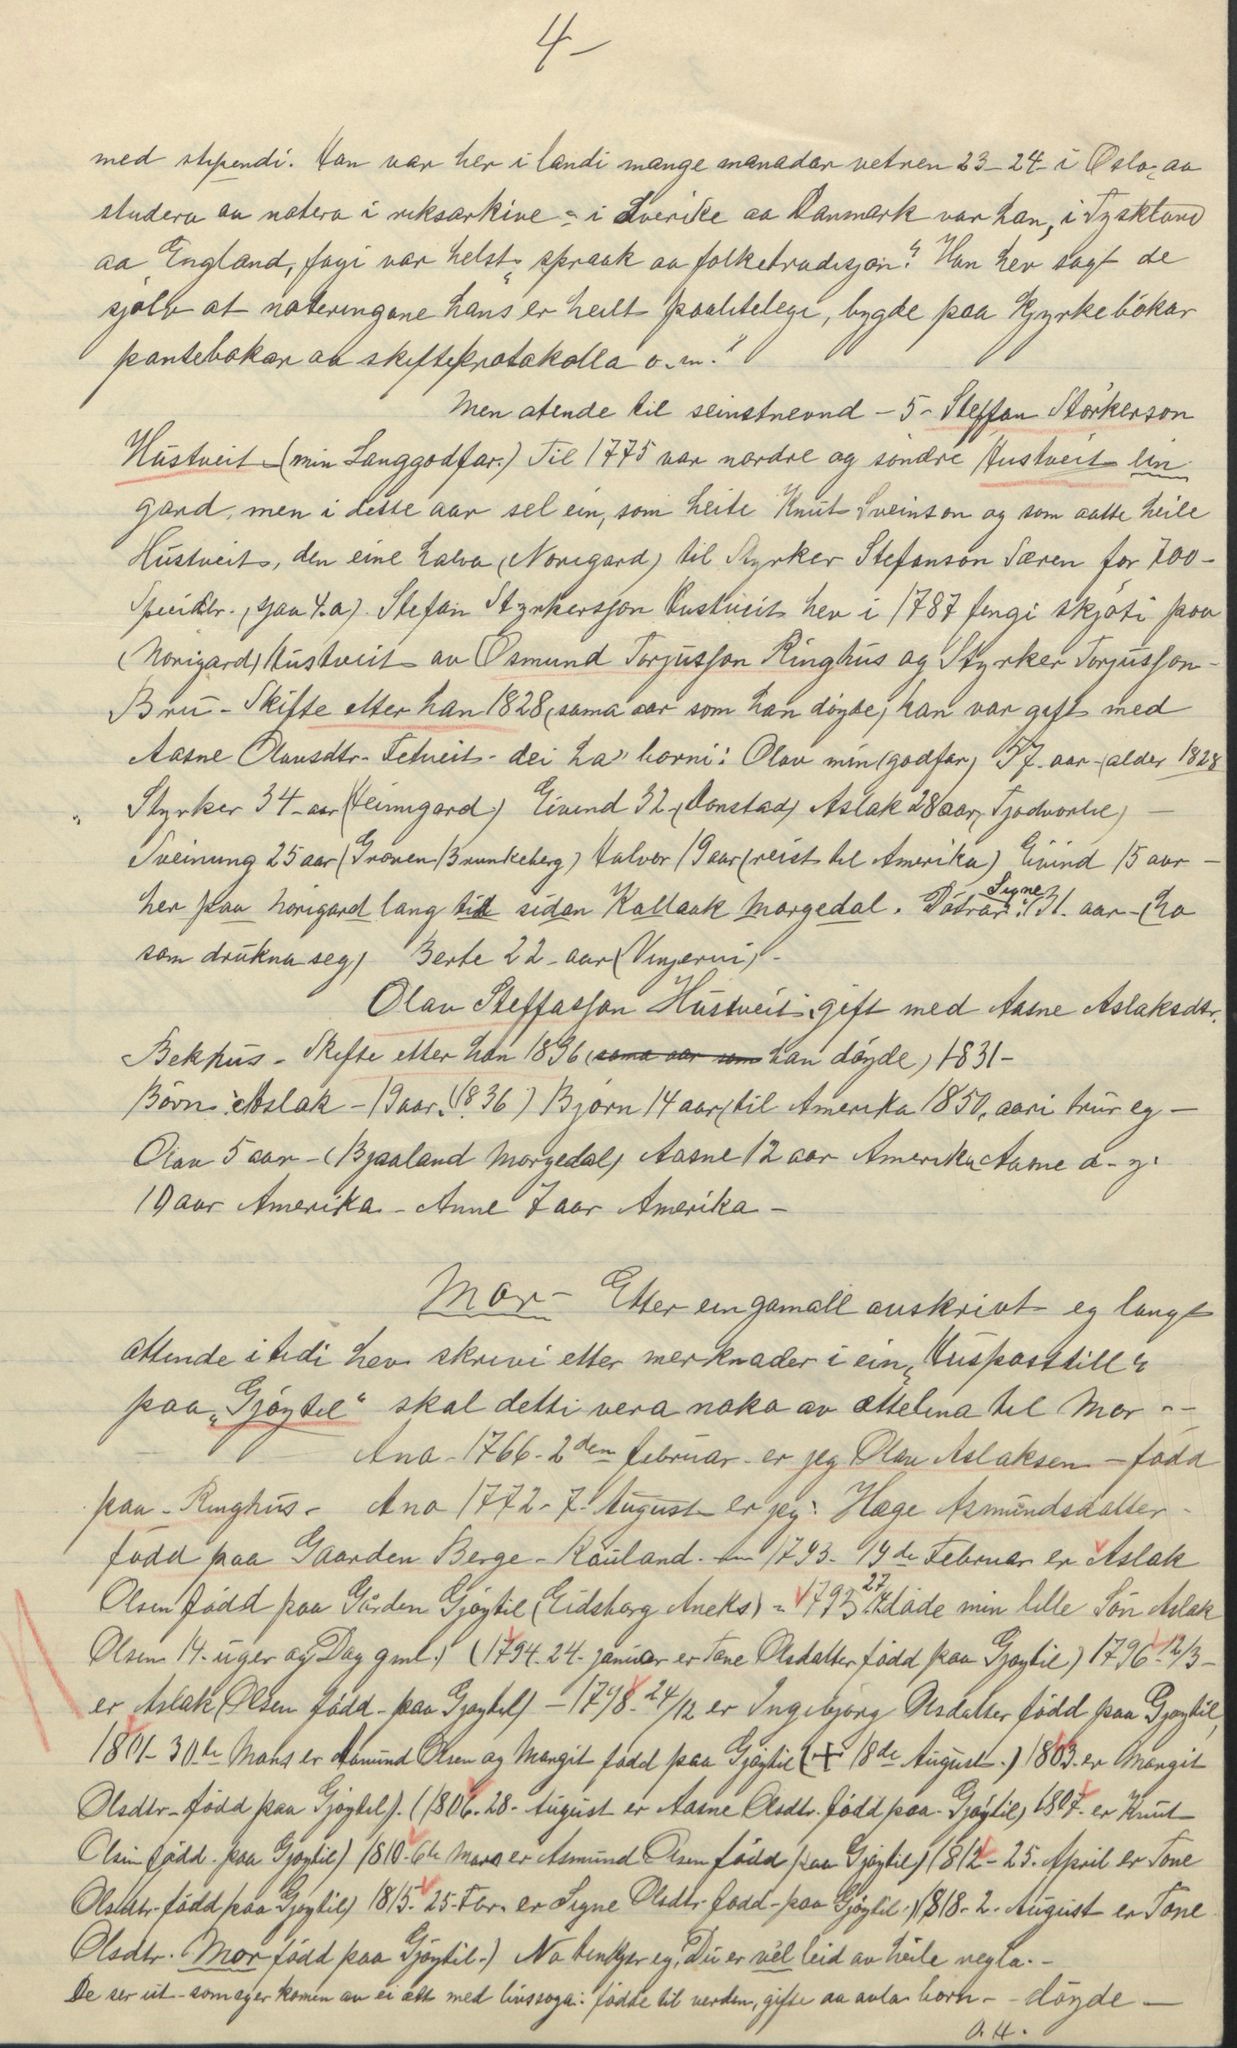 4-
med stipendi. Han var her i landi mange manadar vetren 23-24- i Oslo, aa
studera aa notera i riksarkive - i Sverike aa Danmark var han, i Tyskland
aa England, fagi var helst „spraak aa folketradisjon." Han hev sagt de
sjølv at noteringane hans er heilt paalitelege, bygde paa Kyrkebökar
pantebokar aa skifteprotokolla o.m."
Men atende til seinstnevnd - 5 - Steffan Störkerson
Hustveit - (min Langgodfar.) Til 1775 var nordre og söndre Hustveit ein
gard, men i dette aar sel ein, som heite Knut Sveinson og som aatte heile
Hustveit, den eine halva (Norigard) til Styrker Stefanson Særen for 700-
Specidlr. (sjaa 4.a). Stefan Styrkersson Hustveit hev i 1787 fengi skjöti paa
(Norigard) Hustveit av Osmund Torjusson Ringhus og Styrker Torjusson-
Bru - Skifte etter han 1828 (sama aar som han döyde) han var gift med
Aasne Olavsdtr. Tetveit - dei ha borni: Olav min (godfar) 37 aar - (alder 1828
Styrker 34 - aar (Heimigard) Eivind 32 (Donstad) Aslak 28 aar, Tjodvorli) -
Sveinung 25 aar (Groven Brunkeberg) Halvor 19 aar (reist til Amerika) Eivind 15 aar -
her paa norigard lang tid sidan Kallaak Morgedal. Dötrar: Signe 31. aar - (ho
som drukna seg) Berte 22 - aar (Vinjerui) -
Olav Steffasson Hustveit, gift med Aasne Aslaksdtr.
Bekhus - Skifte etter han 1836 (sama aar som han döyde) 1831 -
Börn: Aslak - 19 aar. (1836) Björn 14 aar (til Amerika 1850, aari trur eg -
Olav 5 aar - (Bjaaland Morgedal) Aasne 12 aar Amerika Aasne d. y.
10 aar Amerika - Anne 7 aar Amerika -
Mor - Etter ein gamall avskrivt eg langt
attende i tidi hev skrivi etter merknader i ein „Huspostill"
paa „Gjöytil" skal detti vera noko av ættelina til Mor - -
Ano - 1766 - 2den februar - er jeg Olav Aslaksen - född
paa - Ringhus - Ano 1772 - 7. August er jeg: Hæge Asmundsdatter -
född paa Gaarden Berge - Rauland - 1793 - 19de Februar er Aslak
Olsen född paa Gården Gjöytil (Eidsborg Aneks) - 1793 27 döde min lille Sön Aslak
Olsen 14 - uger og Dag gml.) (1794 - 24 - januar er Tone Olsdatter född paa Gjöytil) 1796 - 12/3 -
er Aslak Olsen född - paa Gjöytil) - 1798 - 24/12 er Ingebjörg Olsdatter född paa Gjöytil,
1801 - 30te Mars er Amund Olsen og Mangit född paa Gjöytil (+ 18de August.) 1803 - er Mangit
Olsdtr - född paa Gjöytil). (1806 - 28 - August er Aasne Olsdtr. född paa - Gjöytil) 1807 - er Knut
Olsen född - paa Gjöytil) 1810 - 6te Mars er Asmund Olsen född paa Gjöytil) 1812 - 25. April er Tone
Olsdtr. född paa Gjöytil) 1815 - 25 - Febr. er Signe Olsdtr. född - paa Gjöytil.) 1818 - 2. August er Tone
Olsdtr. (Mor född paa Gjöytil.) No tenkjer eg, Du er vel leid av heile regla. -
De ser ut - som eg er komen av ei ætt med livssoga: födde til verden, gifte aa avla born - - döyde -
O.H.